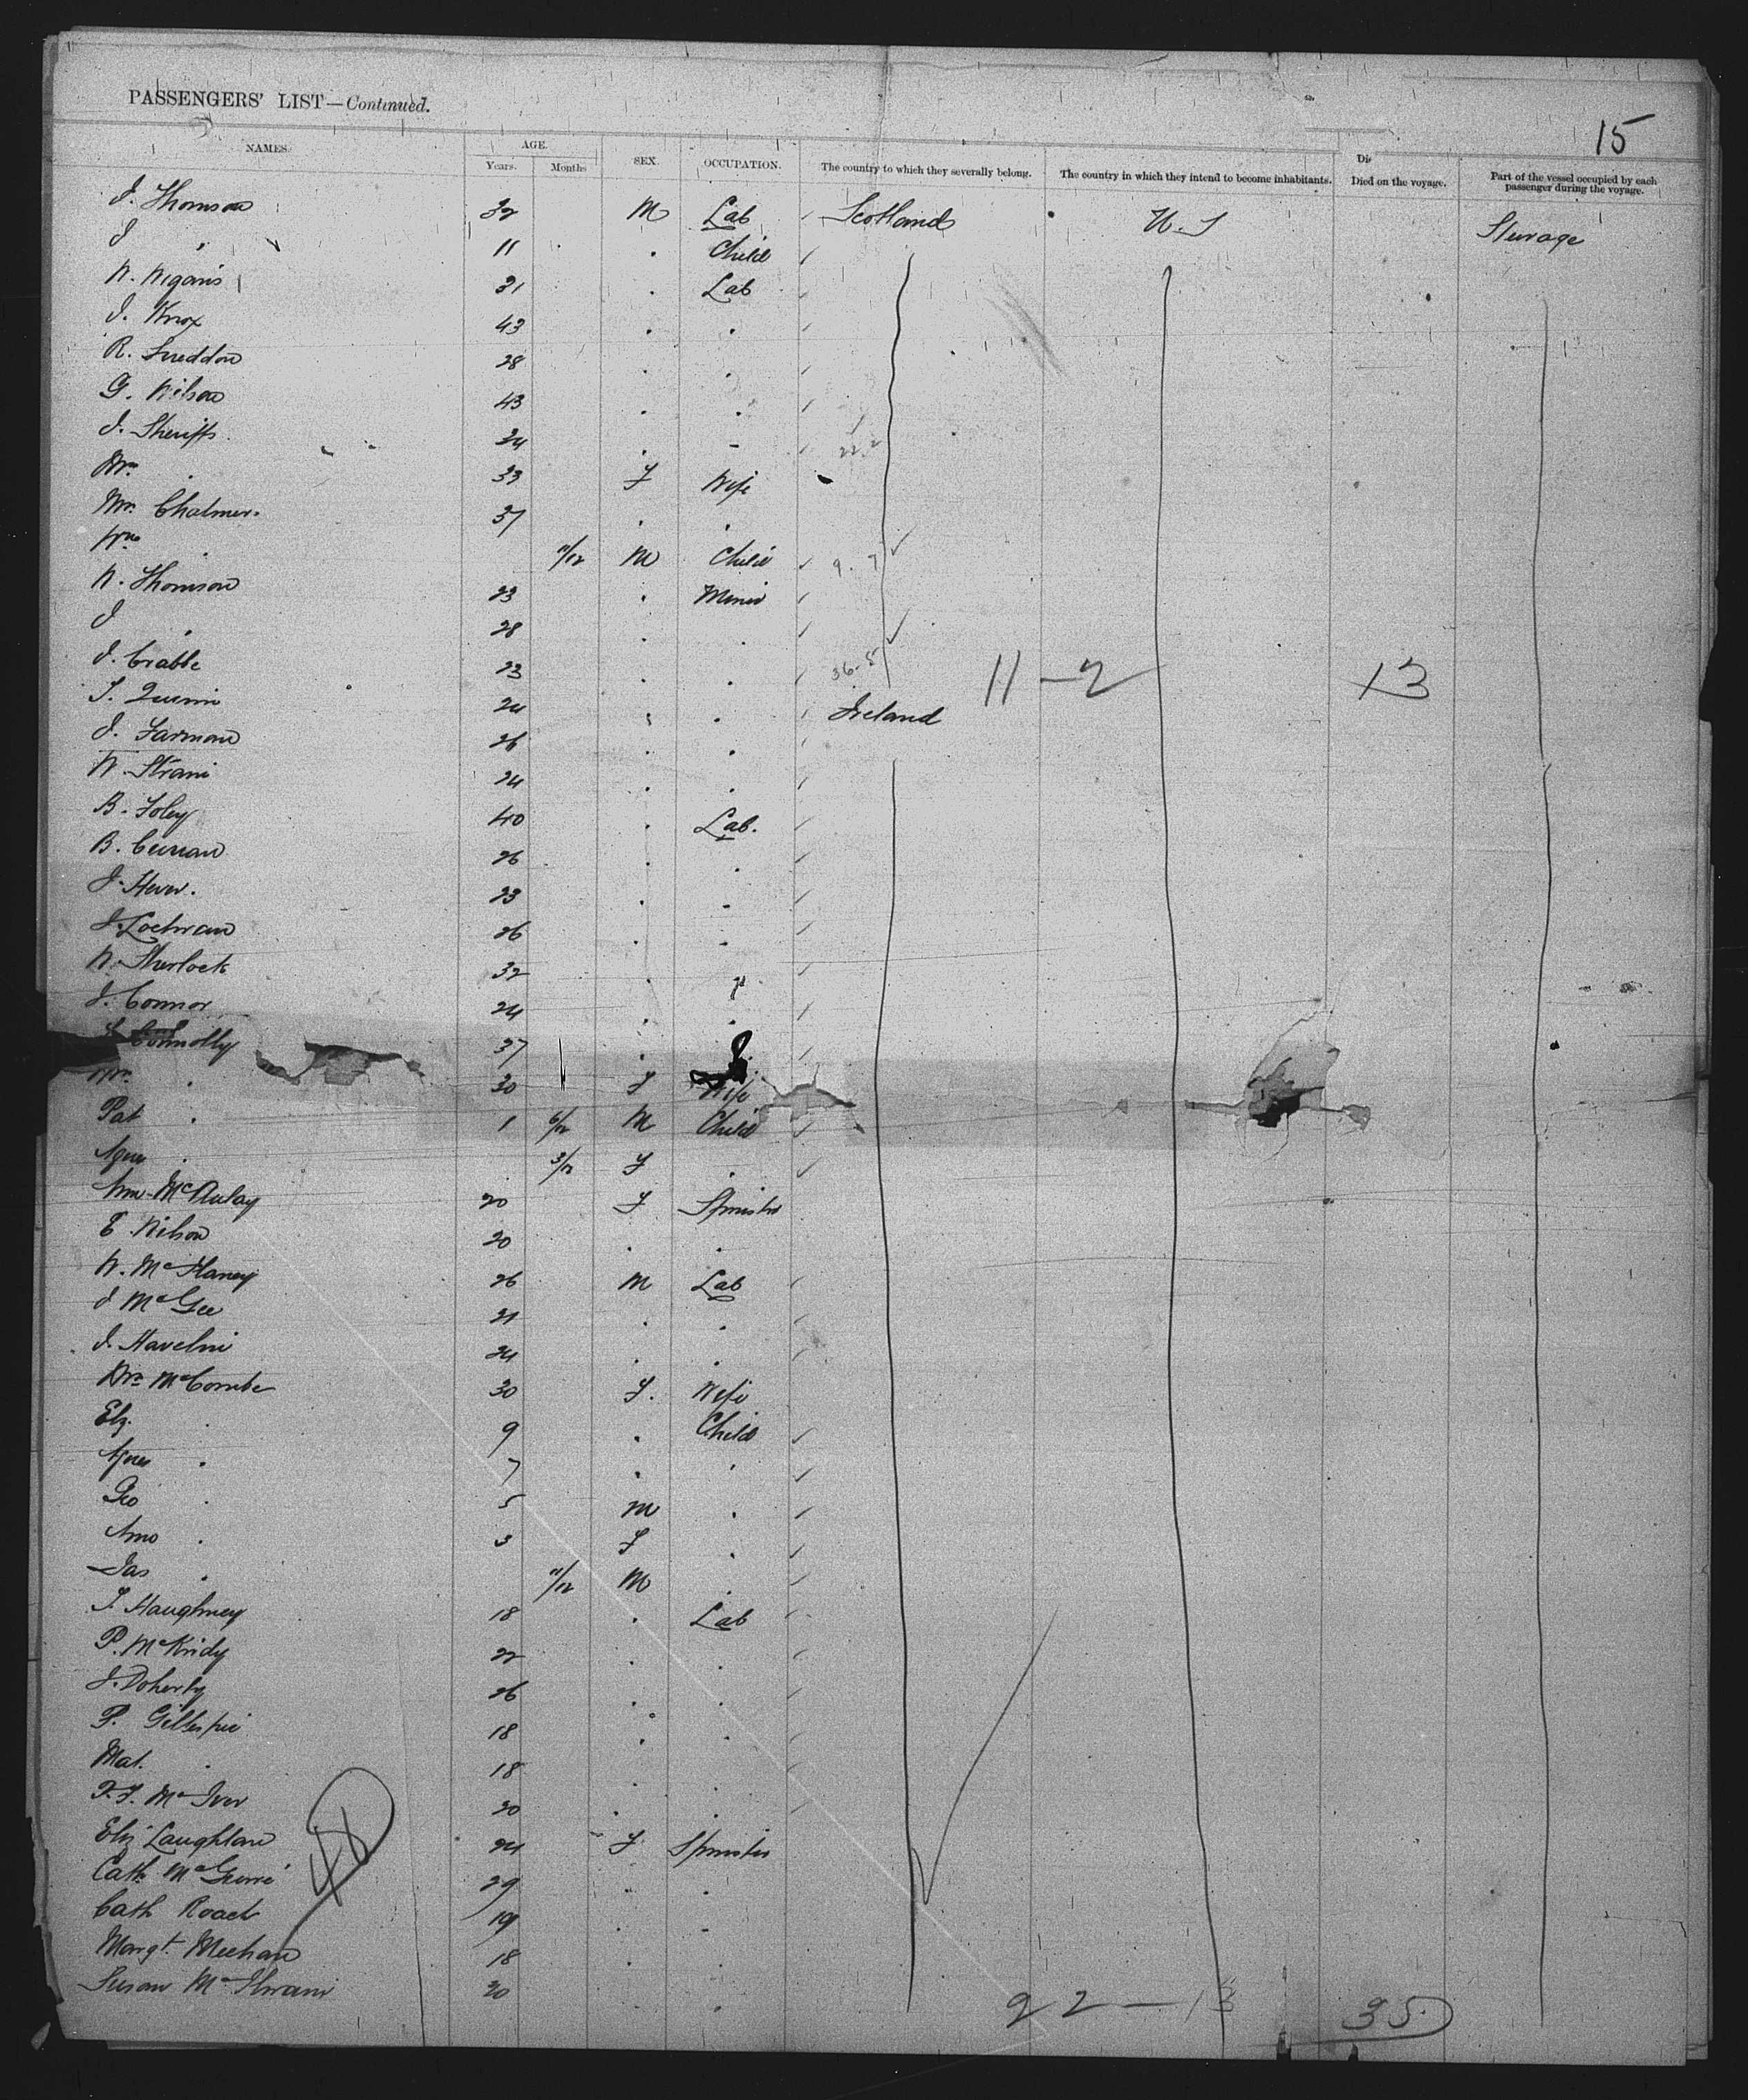 PASSENGERS' LIST—Continued.
15
NAMES. AGE. Years. Months SEX. OCCUPATION. The country to which they severally belong. The country in which they intend to become inhabitants. Died on the voyage. Part of the vessel occupied by each passenger during the voyage.
J. Thomson 32 M Lab Scotland U.S
J " 11 . Child
31 . Lab
J. Knox 43 . .
R. Sneddon 28 . .
G. Wilson 43 . .
J. Sheriffs 24 . -
Mrs . 33 F Wife
Mrs Chalmers 37 . .
Wm . 11/12 M Child
W. Thomson 23 . Miner
J . 28 . .
J. Crabbe 23 . .
11 - 2 13
24 . . Ireland
26 . .
24 . .
B. Foley 40 . Lab.
B. Curran 26 . .
23 . -
26 . -
W. Sherlock 32 .
J. Connor 24 . .
Connolly 37 .
Mrs . 30 F Wife
Pat . 1 6/12 M Child
Agnes . 3/12 F .
McAulay 20 F Spinster
E. Wilson 20 . .
26 M Lab
J McGee 21 . .
24 . .
Mrs McCombe 30 F. Wife
Elz. . 9 . Child
Agnes . 7 . .
Geo . 5 M .
3 F .
Jas . 11/12 M .
18 . Lab
22 . .
J. Doherty 26 . .
P. Gillespie 18 . .
Mat. . 18 . .
McIver 20 . .
Eliz Laughlan 24 F Spinster
Cath 29 . .
Cath Roach 19 . -
Margt. Meehan 18 . .
Susan 20 .
22 - 13 35